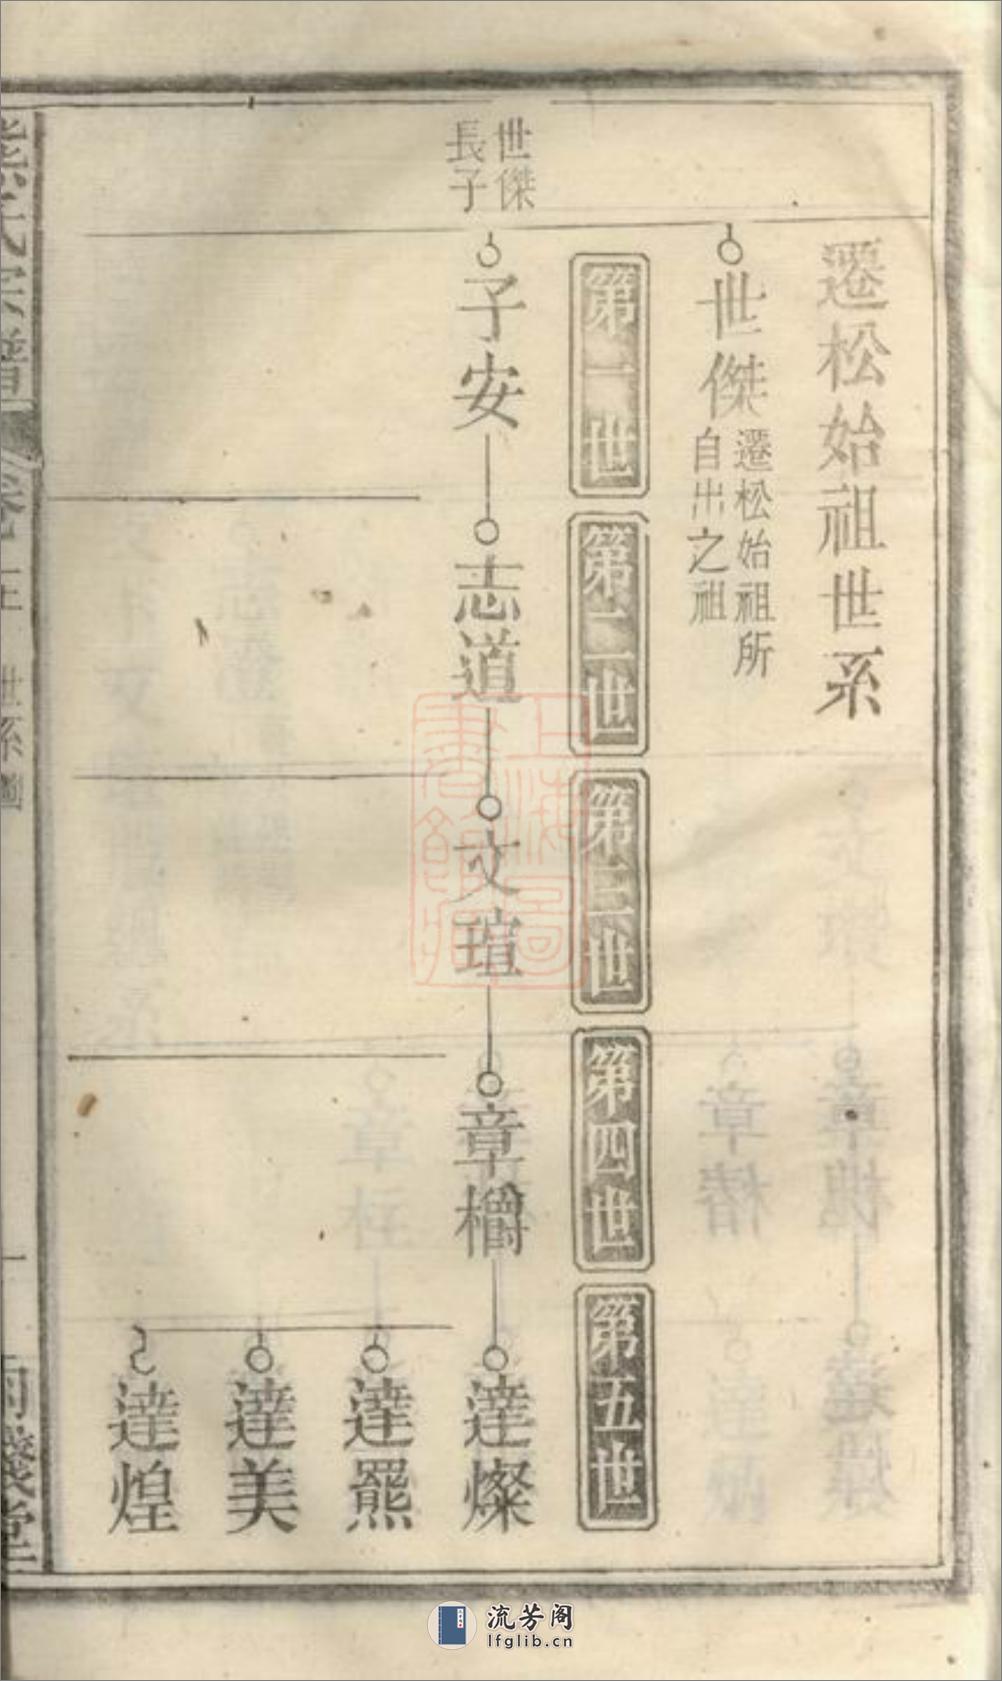 遷松始祖世系
世傑
遷松始祖所
自出之祖
第一世
第二世
第三世
第四世
第五世
世傑
長子
子安
志道
文瑄
章櫛
達燦
達羆
達美
達煌
熊氏宗譜
世系圖
一
上海圖
書館藏
流芳阁
lfglib.cn